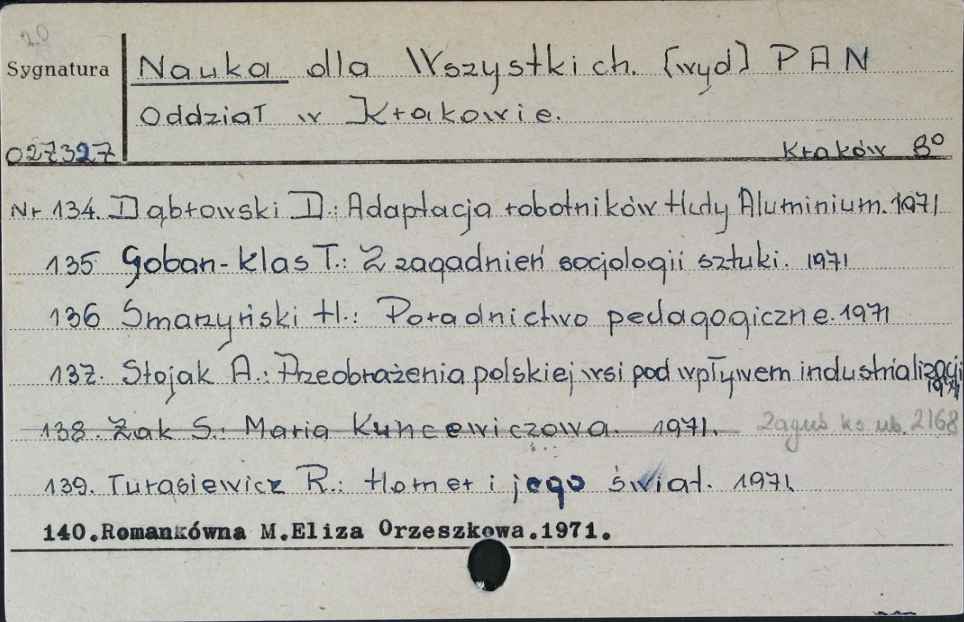 20
Sygnatura
Nauka dla Wszystkich. [wyd] PAN
Oddział w Krakowie.
027327
Kraków 8°
Nr 134. Dąbrowski D.: Adaptacja robotników Huty Aluminium. 1971
135 Goban-Klas T.: Z zagadnień socjologii sztuki. 1971
136 Smarzyński H.: Poradnictwo pedagogiczne. 1971
137. Stojak A.: Przeobrażenia polskiej wsi pod wpływem industrializacji 1971
138. Żak S.: Maria Kuncewiczowa. 1971. Zagub ks ub. 2168
139. Turasiewicz R.: Homer i jego świat. 1971
140.Romankówna M.Eliza Orzeszkowa.1971.